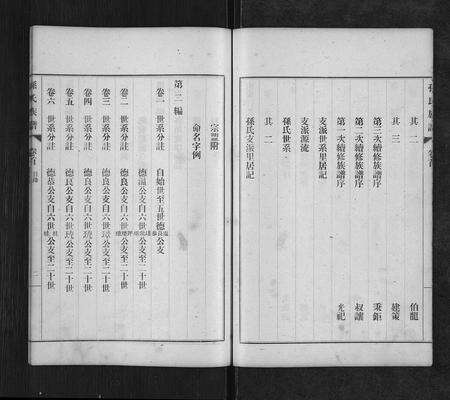 孫氏族譜 卷首
其二 伯龍
其三 建策
第三次續修族譜序 秉鉅
第二次續修族譜序 叔謙
第一次續修族譜序 光祀
支派世系里居記
支派源流
孫氏世系
其二
孫氏支派里居記
宗盟附
命名字例
第二編
卷一 世系分註 自始世至五世德
公支
卷二 世系分註 德溫公支自六世
公支至二十世
德良公支自六世
公支至二十世
卷三 世系分註 德良公支自六世
公支至二十世
卷四 世系分註 德良公支自六世
公支至二十世
卷五 世系分註 德良公支自六世
公支至二十世
卷六 世系分註 德恭公支自六世
公支至二十世
孫氏族譜 卷首 目錄 二